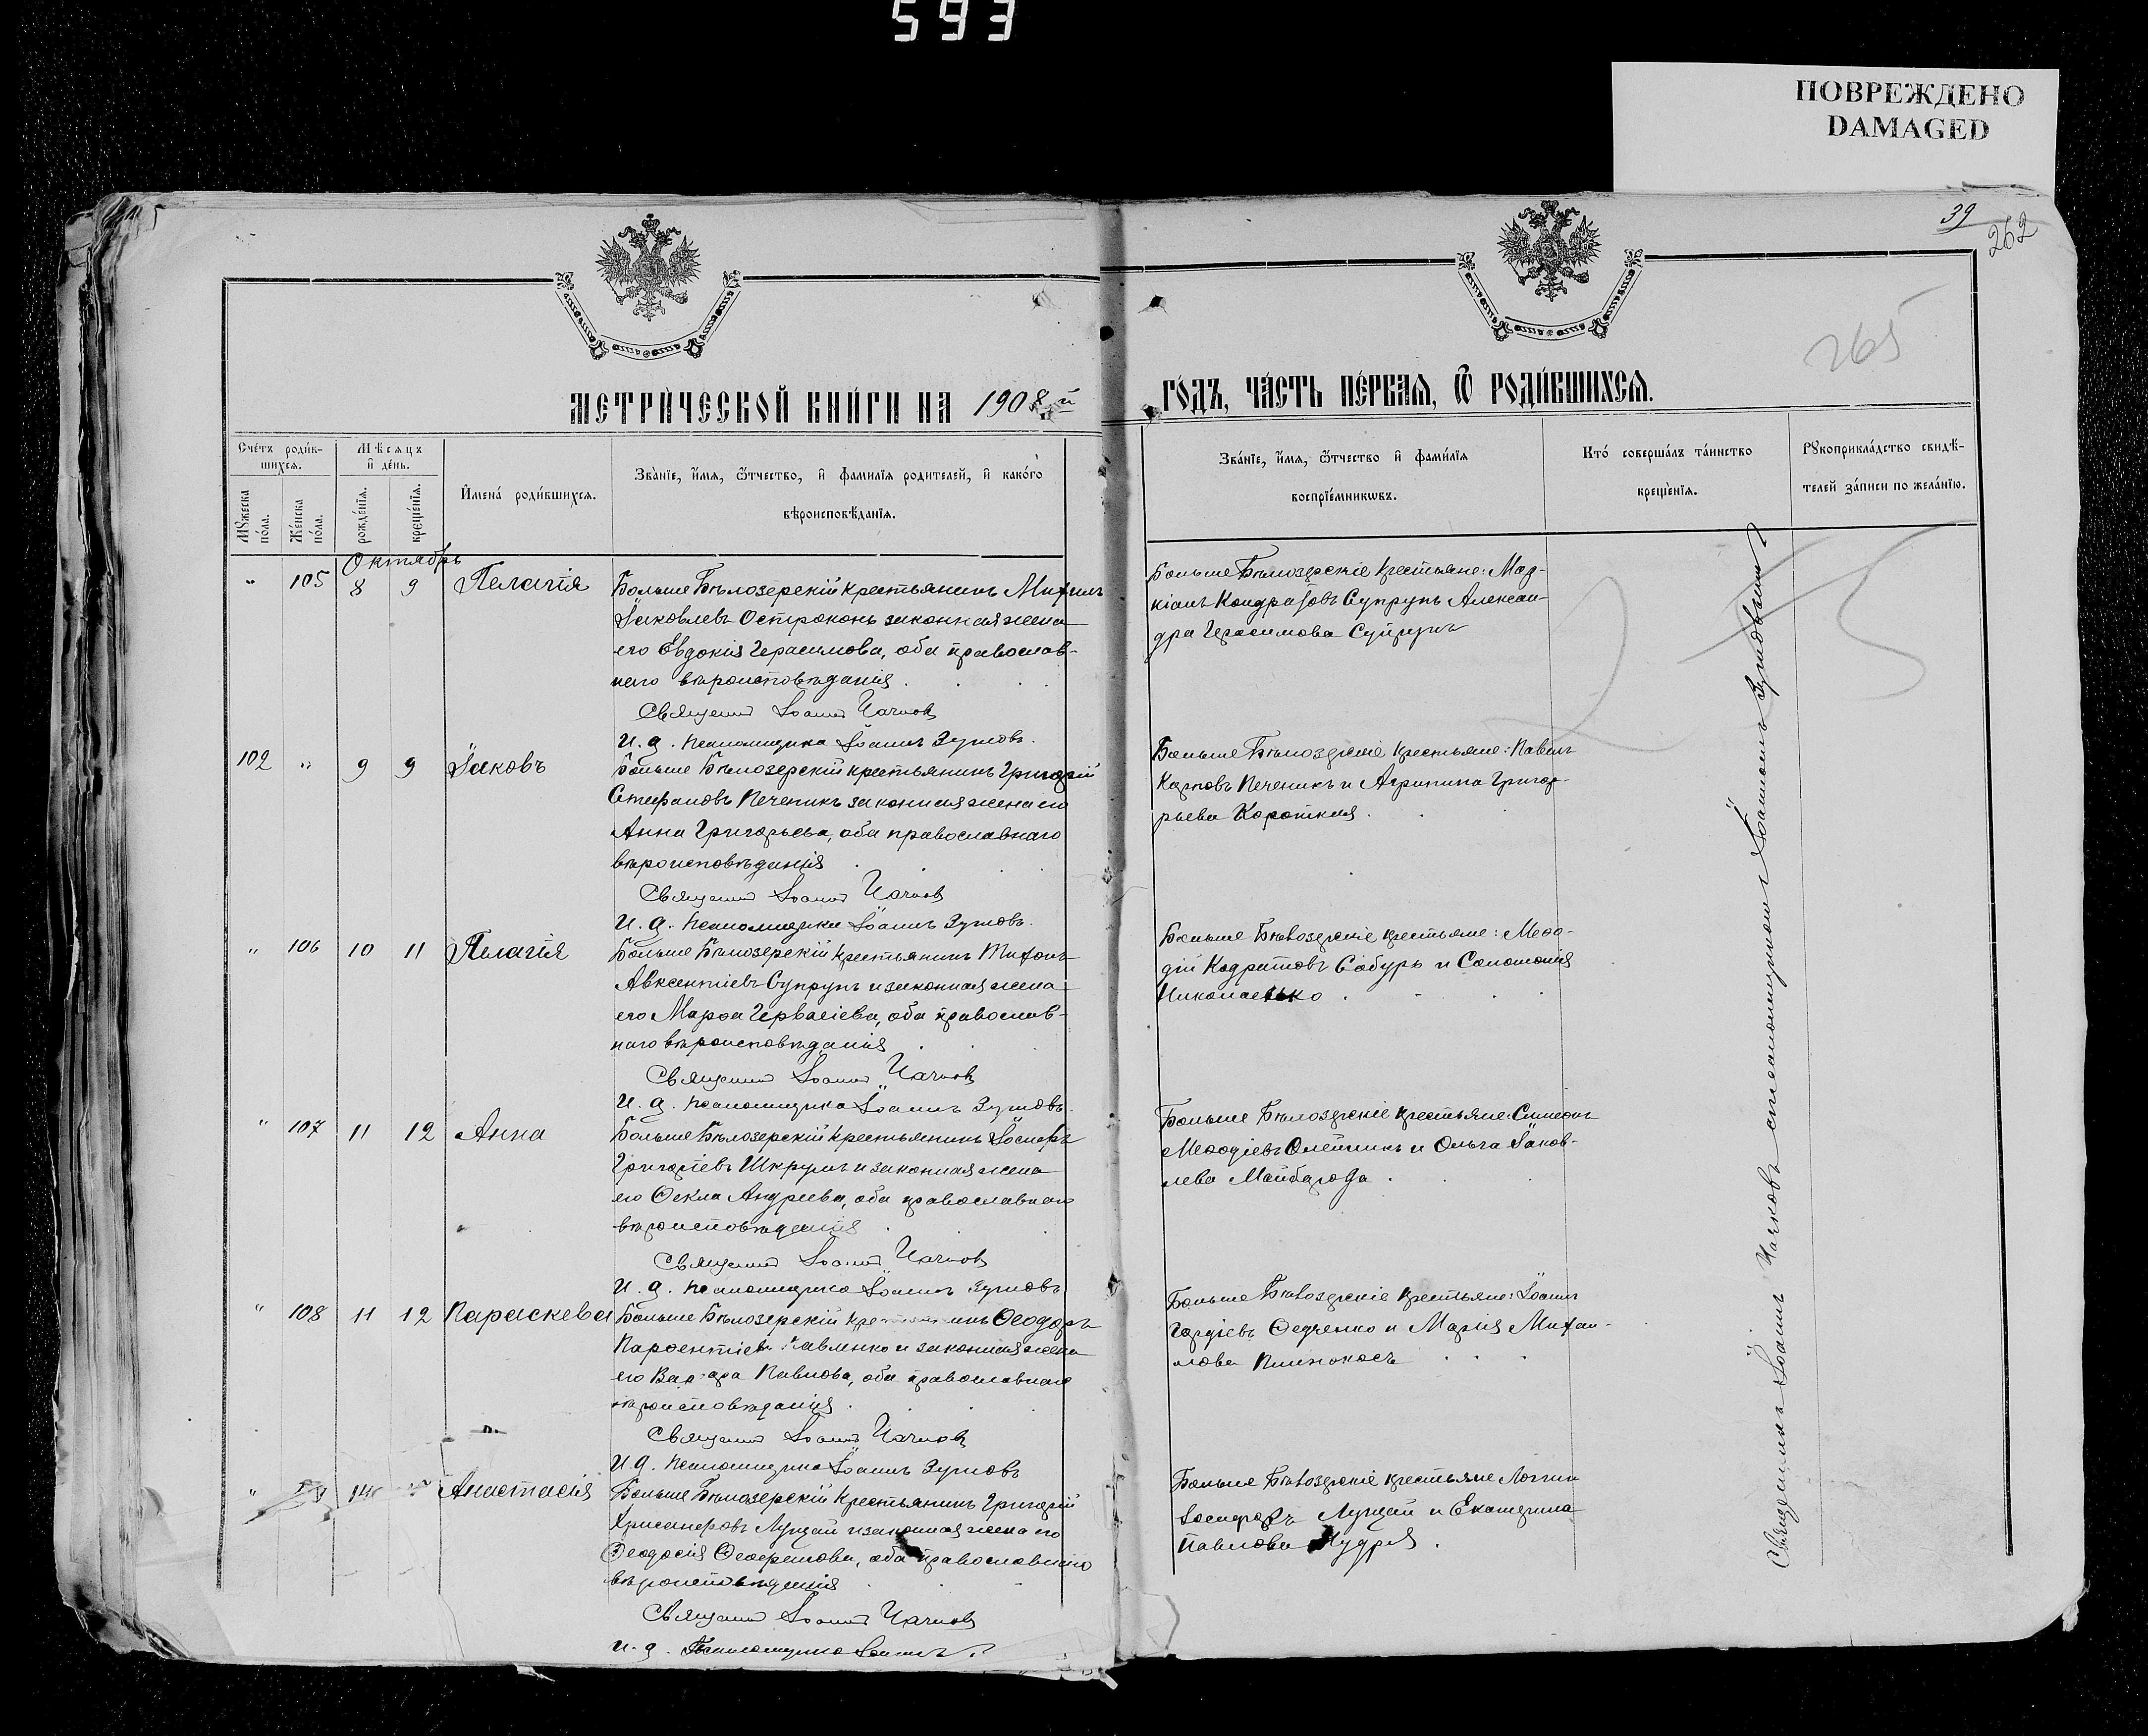 593
ПОВРЕЖДЕНО
DAMAGED
39
262
265
МЕТРИ́ЧЕСКОЙ КНИ́ГИ НА 1908 й
ГО́ДЪ, ЧА́СТЬ ПЕ́РВАѦ, Ѿ РОДИ́ВШИХСѦ.
Сче́тъ роди́в-
шихсѧ.
Мꙋжеска по́ла.
Же́нска по́ла.
Мѣ́сѧцъ
и҆ де́нь.
рожде́нїѧ.
креще́нїѧ.
И҆мена́ роди́вшихсѧ.
Зва́нїе, и҆́мѧ, ѻ҆́тчество, и҆ фами́лїѧ роди́телей, и҆ како́гѡ
вѣроисповѣ́данїѧ.
Зва́нїе, и҆́мѧ, ѻ҆́тчество и҆ фами́лїѧ
воспрїе́мникѡвъ.
Кто̀ соверша́лъ та́инство
креще́нїѧ.
Рꙋкоприкла́дство свидѣ́-
телей за́писи по жела́нїю.
Октябрь
" 105 8 9 Пелагія
Больше Бѣлозерскій крестьянинъ Михаилъ
Іаковлевъ Остроконь законная жена
его Евдокія Герасимова, оба православ-
наго вѣроисповѣданія.
Священ Іоаннъ Начков
И. д. псаломщика Іоаннъ
Больше Бѣлозерскіе крестьяне: Мар-
кіанъ Кондратовъ Супрунъ Алексан-
дра Герасимова Супрунъ
102 " 9 9 Іаковъ
Больше Бѣлозерскій крестьянинъ Григорій
Стефановъ Печеникъ законная жена его
Анна Григорьева, оба православнаго
вѣроисповѣданія
Священ Іоаннъ Начков
И. д. псаломщика Іоаннъ
Больше Бѣлозерскіе крестьяне: Павелъ
Карповъ Печеникъ и Агрипина Григор-
рьева Короткая.
" 106 10 11 Пелагія
Больше Бѣлозерскій крестьянинъ Тихонъ
Авксентіевъ Супрунъ и законная жена
его Марѳа Гервасіева, оба православ-
наго вѣроисповѣданія
Священ Іоаннъ Начков
И. д. псаломщика Іоаннъ
Больше Бѣлозерскіе крестьяне: Меѳо-
дій Кодратовъ Сабуръ и Соломонія
Николаенко.
" 107 11 12 Анна
Больше Бѣлозерскій крестьянинъ Іосифъ
Григоріевъ Шкрумъ и законная жена
его Ѳекла Андреева, оба православнаго
вѣроисповѣданія
Священ Іоаннъ Начков
И. д. псаломщика Іоаннъ
Больше Бѣлозерскіе крестьяне Симеонъ
Меѳодіевъ Олейникъ и Ольга Іаков-
лева Майборода.
" 108 11 12 Параскева
Больше Бѣлозерскій Ѳеодоръ
Парѳентіев Павленко и законная жена
его Павлова, оба православнаго
вѣроисповѣданія.
Священ Іоаннъ Начков
И. д. псаломщика Іоаннъ
Больше Бѣлозерскіе крестьяне: Іоаннъ
Гордіевъ Федченко и Марія Михаи-
лова
" 14 Анастасія
Больше Бѣлозерскій крестьянинъ Григорій
Лущай и законная жена его
Ѳеодосія, оба православнаго
вѣроисповѣданія
Священ Іоаннъ Начков
И. д. Псаломщика Іоаннъ
Больше Бѣлозерскіе крестьяне
Лущай и Екатерина
Павлова Кудря.
Священникъ Іоаннъ Начковъ съ псаломщикомъ Іоанномъ